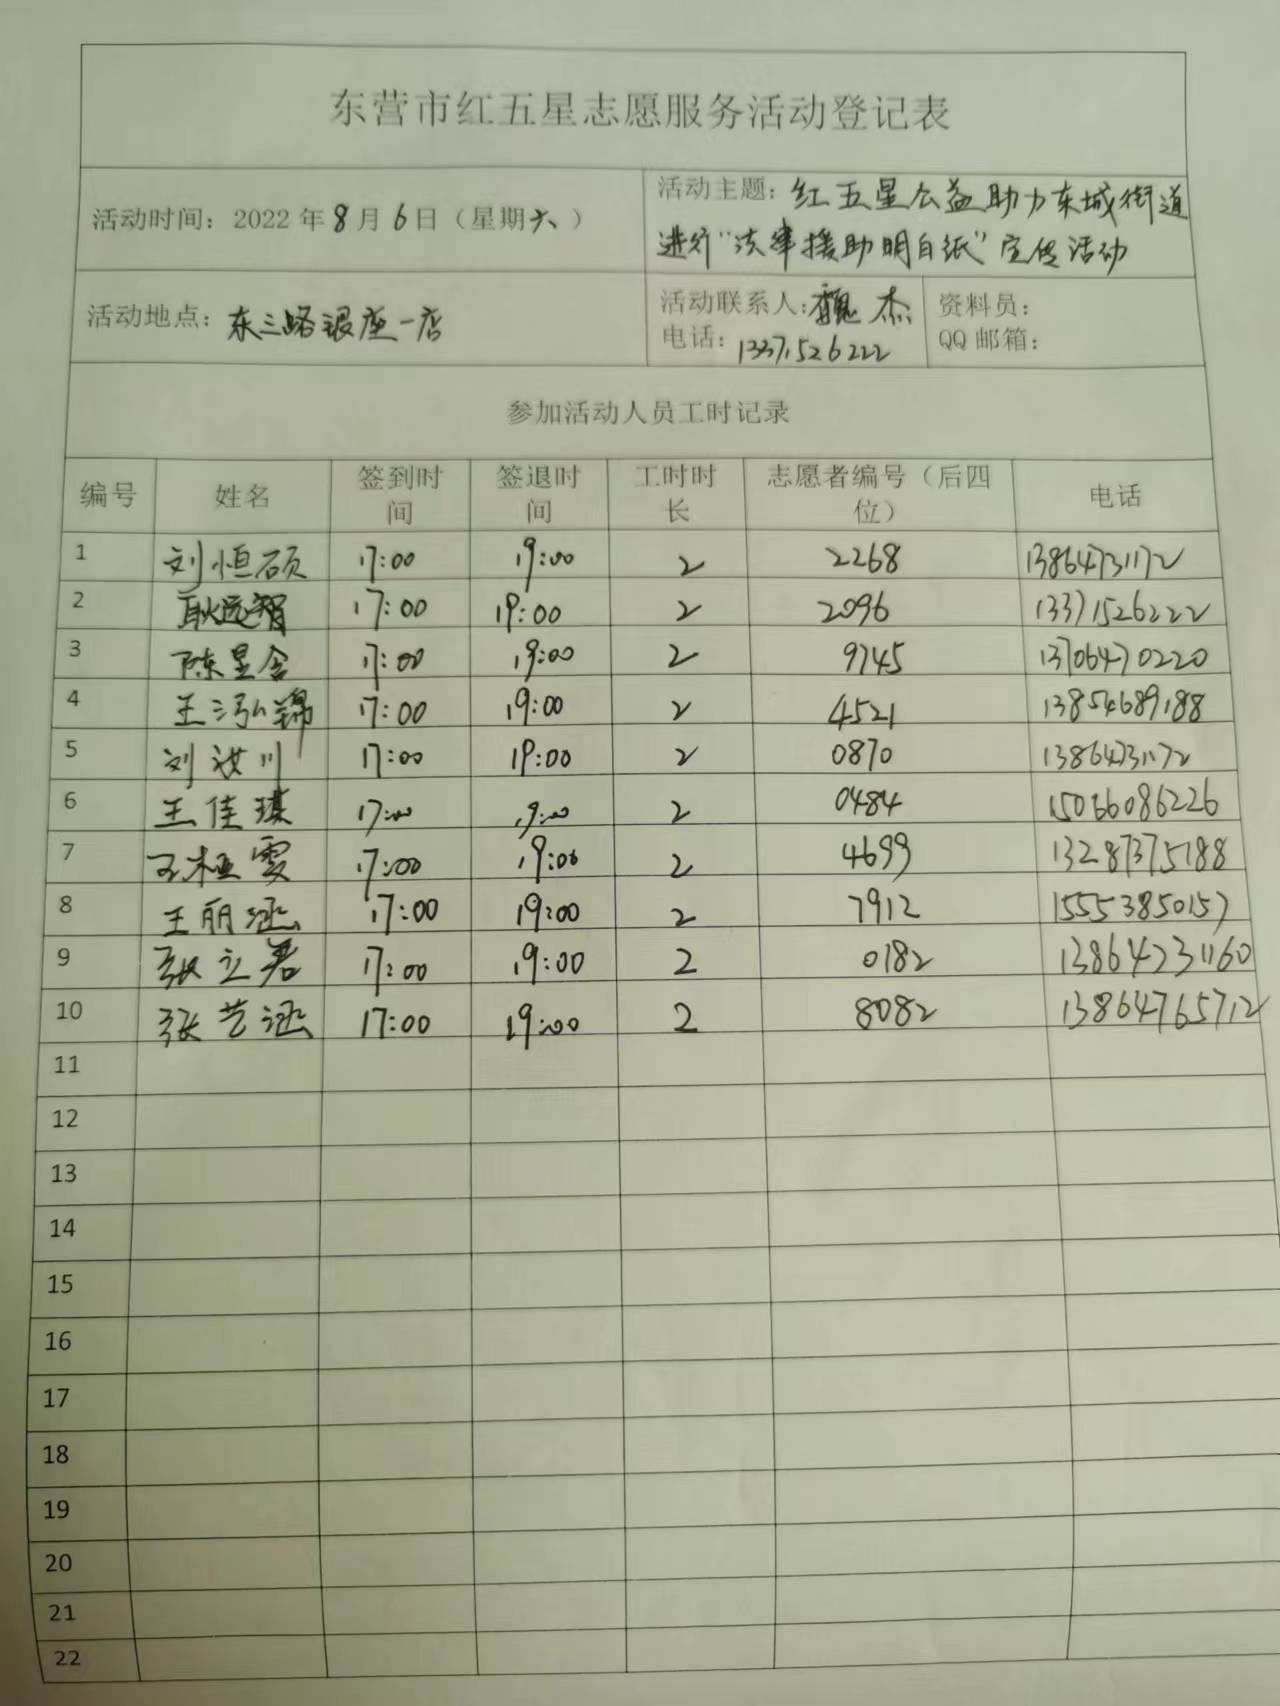 东营市红五星志愿服务活动登记表
活动时间：2022年8月6日（星期六）
活动主题：红五星公益助力东城街道
进行“法律援助明白纸”宣传活动
活动地点：东三路银座一店
活动联系人：魏杰
电话：13371526222
资料员：
QQ邮箱：
参加活动人员工时记录
编号 姓名 签到时间 签退时间 工时时长 志愿者编号（后四位） 电话
1 刘恒硕 17:00 19:00 2 2268 13864731172
2 耿远智 17:00 19:00 2 2096 13371526222
3 陈昱含 17:00 19:00 2 9745 13706470220
4 王泓锦 17:00 19:00 2 4521 13854689188
5 刘汶川 17:00 19:00 2 0870 13864731172
6 王佳琪 17:00 19:00 2 0484 15066086226
7 王桠雯 17:00 19:00 2 4699 13287375188
8 王丽涵 17:00 19:00 2 7912 15553850157
9 张立君 17:00 19:00 2 0182 13864231160
10 张艺涵 17:00 19:00 2 8082 13864765712
11
12
13
14
15
16
17
18
19
20
21
22